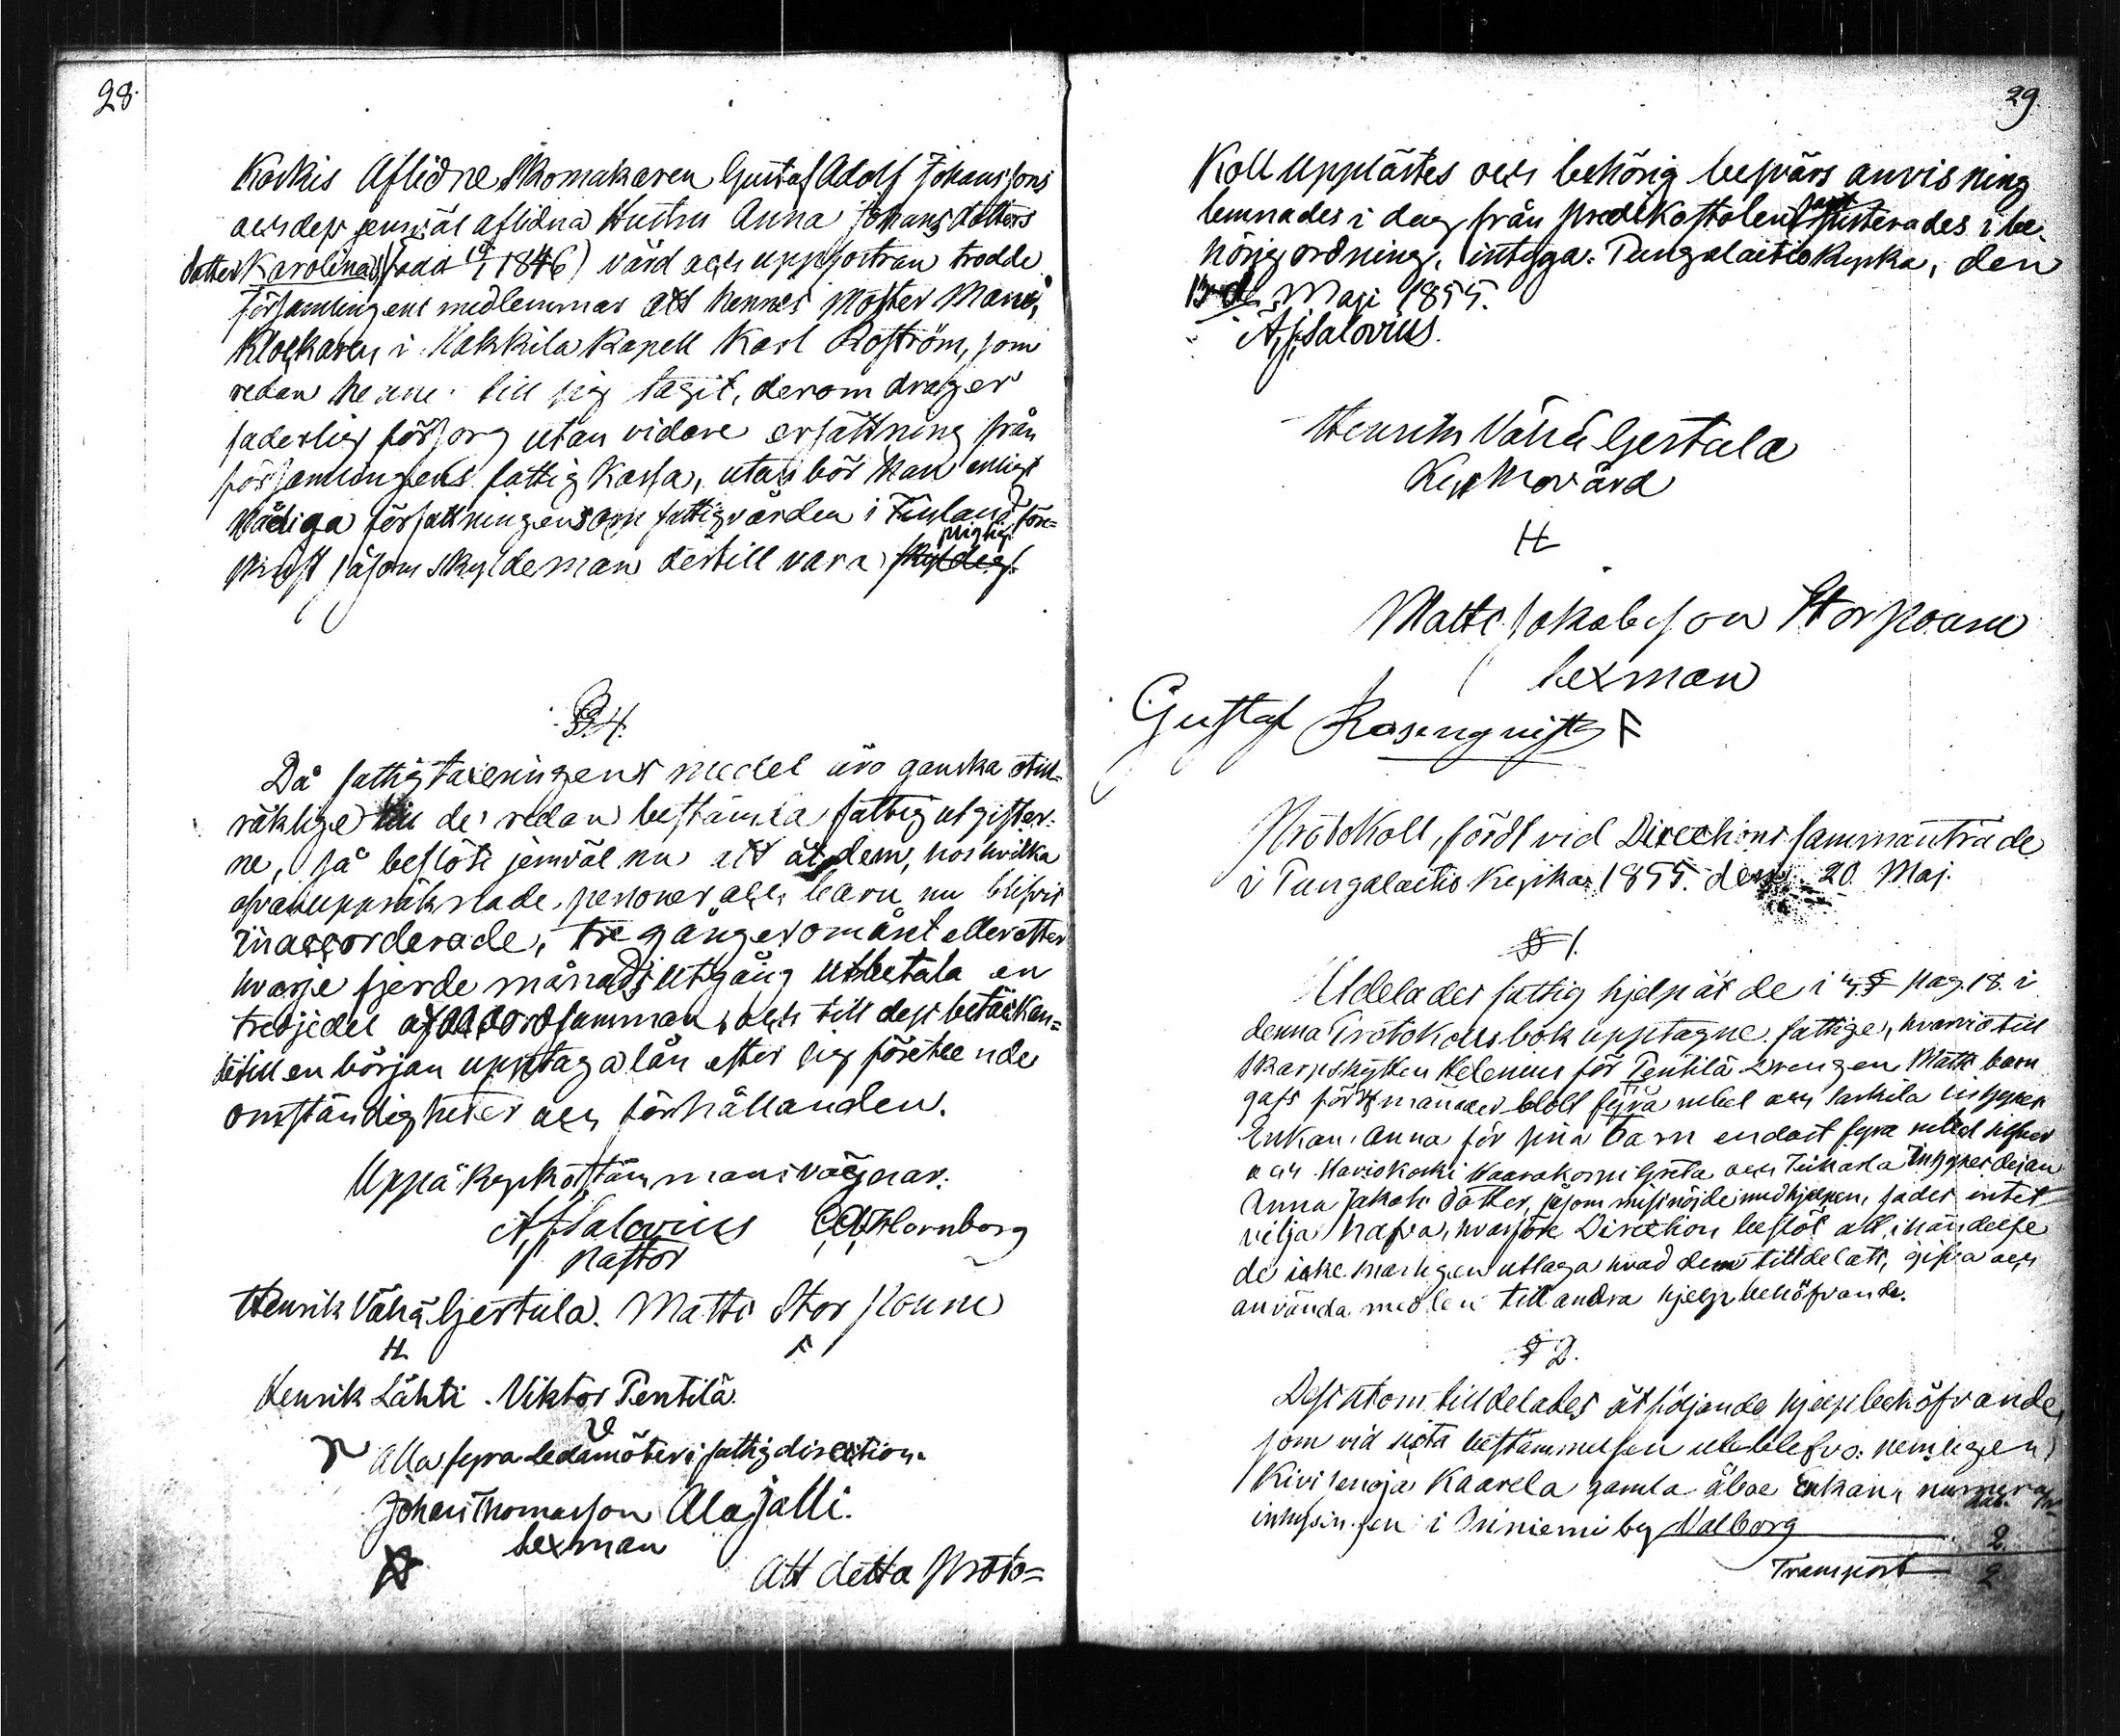 28.
Koskis Aflidne Skomakaren Gustaf Adolf Johanssons
och dess jemväl aflidna Hustru Anna Johansdotters
dotter Karolinas (född 1846) vård och uppfostran trodde
Församlingens medlemmar att hennes Moster Man,
Klockaren i Kakkila Kapell Karl Roström, som
redan henne till sig tagit, derom drager
faderlig försorg utan vidare ersättning från
församlingens fattig Kassa, utan bör han enligt
Nådiga författningen om fattigvården i Finland före-
skrift såsom skyldeman dertill vara pligtig.
§ 4.
Då fattigtaxeringens medel äro ganska otill-
räklige till de redan bestämda fattig utgifter-
ne, så beslöts jemväl nu att åt dem, hos hvilka
ofvanuppräknade personer och barn nu blifvit
inaccorderade, tre gånger om året eller efter
hvarje fjerde månads utgång utbetala en
tredjedel af accordsumman, och till dess betäckan-
de till en början upptaga lån efter sig företeende
omständigheter och förhållanden.
Uppå Kyrkostämmans vägnar:
A. J. Salovius
Pastor
Hornborg
Henrik Vähä Gertula. Matti Stor
H
Henrik Lähti. Viktor Pentilä.
Alla fyra ledamöter i fattigdirection.
Johan Thomasson Alajalli.
Sexman
Att detta Proto-
29.
Koll upplästes och behörig besvärs anvisning
lemnades i dag från predikostolen justerades i be-
hörig ordning, intyga: Pungalaitio Kyrka, den
13 Maji 1855.
A. J. Salovius.
Henrik Vähä Gertula
Kyrkovärd
H
Matts Jakobsson Stor
Sexman
Gustaf Rosengvist
Protokoll, fördt vid Directions sammanträde
i Pungalaitio Kyrka 1855. den 20. Maj.
§ 1.
Utdelades fattig hjelp åt de i 4 § pag. 18. i
denna Protokolls bok upptagne fattige, hvarvid till
Skarpskytten Helenius för Pentilä Drengen Matts barn
gafs för månader blott fyra rubel och
Enkan Anna för sina barn endast fyra rubel silfver
och Greta och
Anna Jakobs dotter, såsom missnöjde med hjelpen, sades intet
vilja hafva, hvarföre Direction beslöt att, i händelse
de icke uttaga hvad dem tilldelats, gifva och
använda medlen till andra hjelpbehöfvande.
§ 2.
Dessutom tilldelades åt följande hjelpbehöfvande,
som vid sista bestämmelsen uteblefvo: nemligen
Kaarela gamla Enkan, numera
inhysingen i Niniemi by Valborg 2.
Transport 2